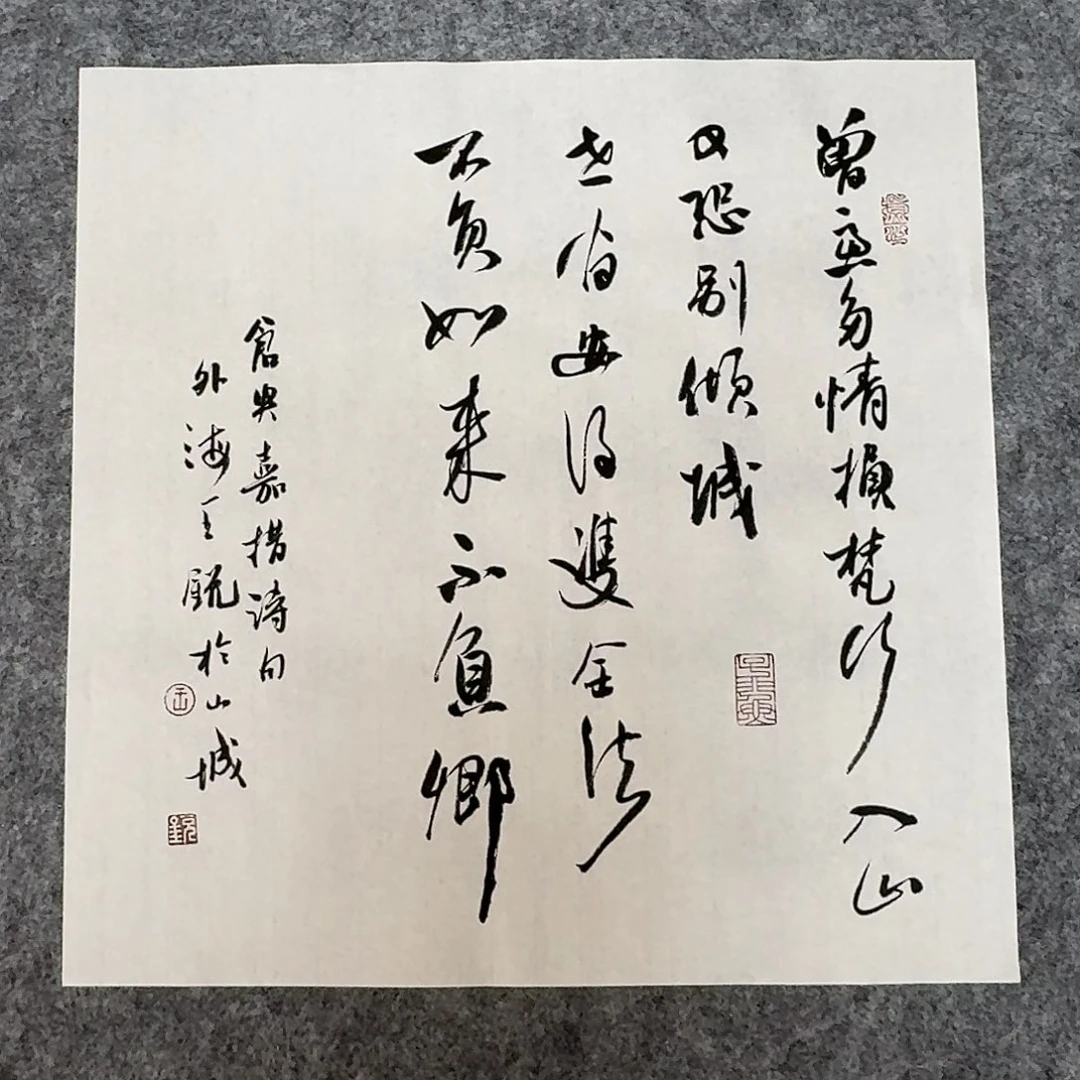 曾慮多情損梵行入山
又恐別傾城
世间安得雙全法
不負如来不負卿
倉央嘉措詩句
外海王銳於山城